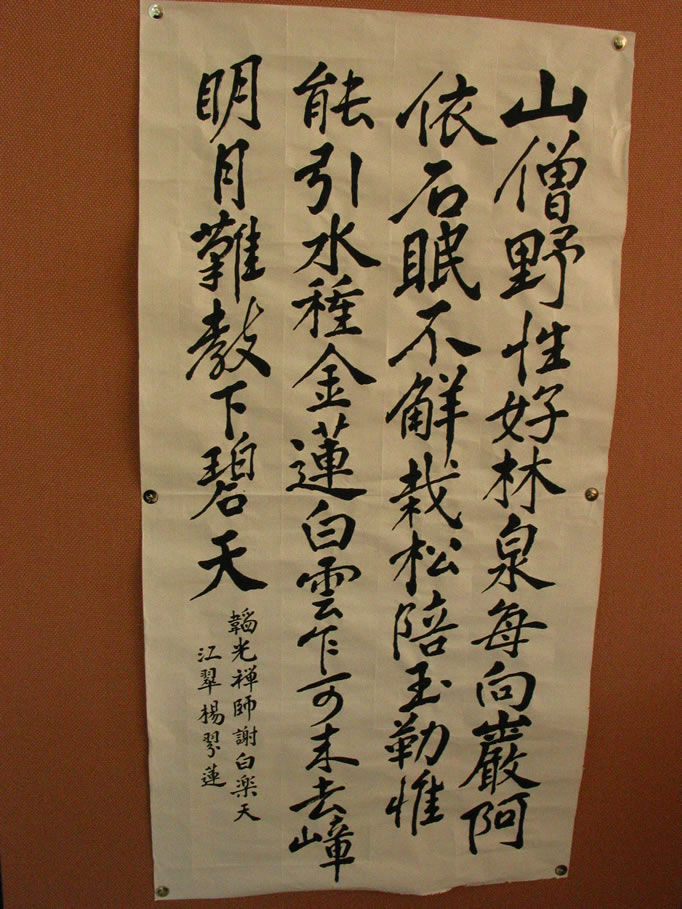 山僧野性好林泉每向巖阿
依石眠不解栽松陪玉勒惟
能引水種金蓮白雲乍可来去嶂
明月難教下碧天
韜光禅師謝白楽天
江翠楊翠蓮